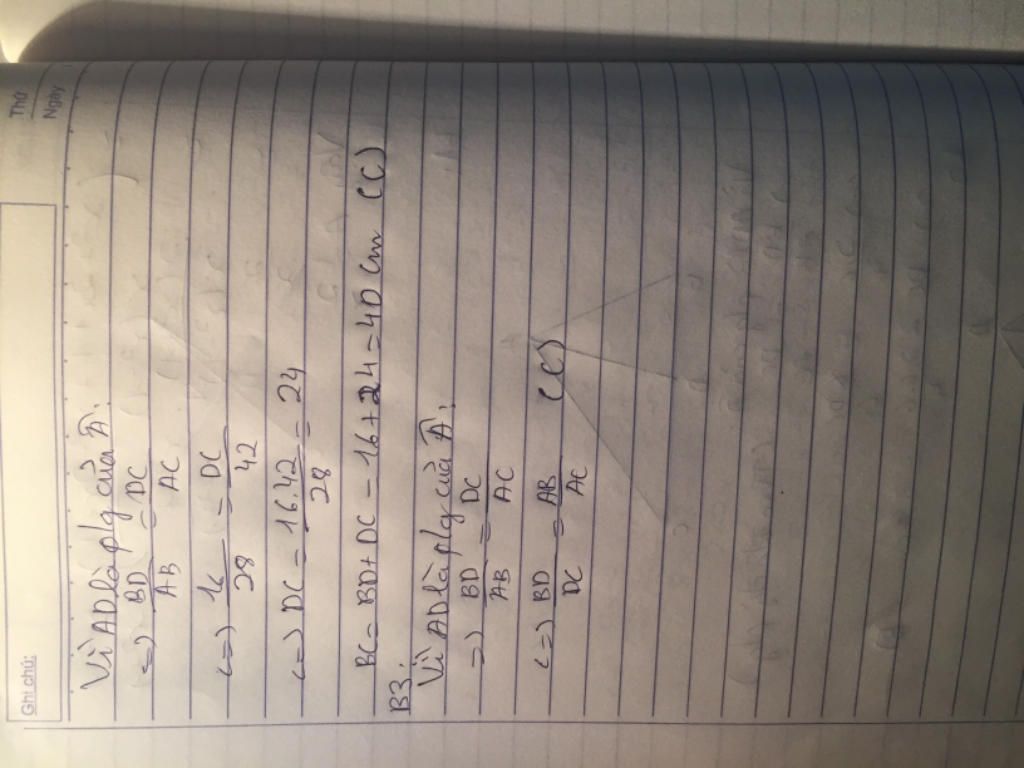 Thứ
Ngày
Ghi chú:
Vì AD là p/g của Â.
=) BD/AB = DC/AC
<=) 16/28 = DC/42
<=) DC = 16.42/28 = 24
BC = BD + DC = 16 + 24 = 40 cm (C)
B3.
Vì AD là p/g của Â.
=) BD/AB = DC/AC
<=) BD/DC = AB/AC (C)